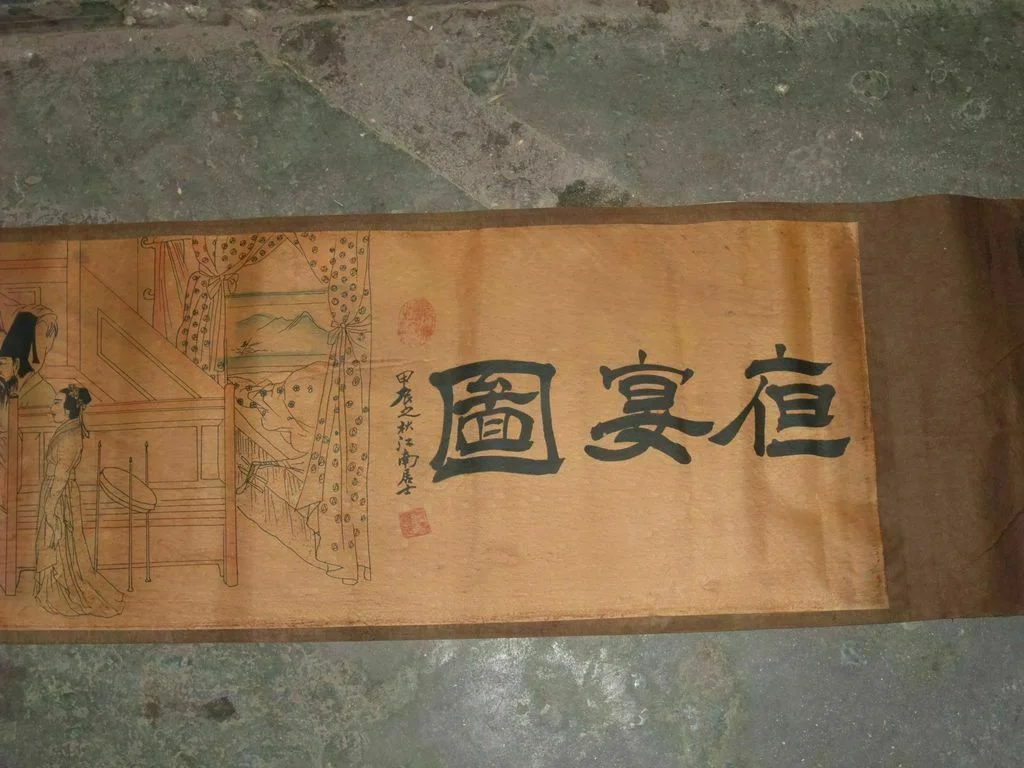 亱宴圖
甲辰之秋江南居士